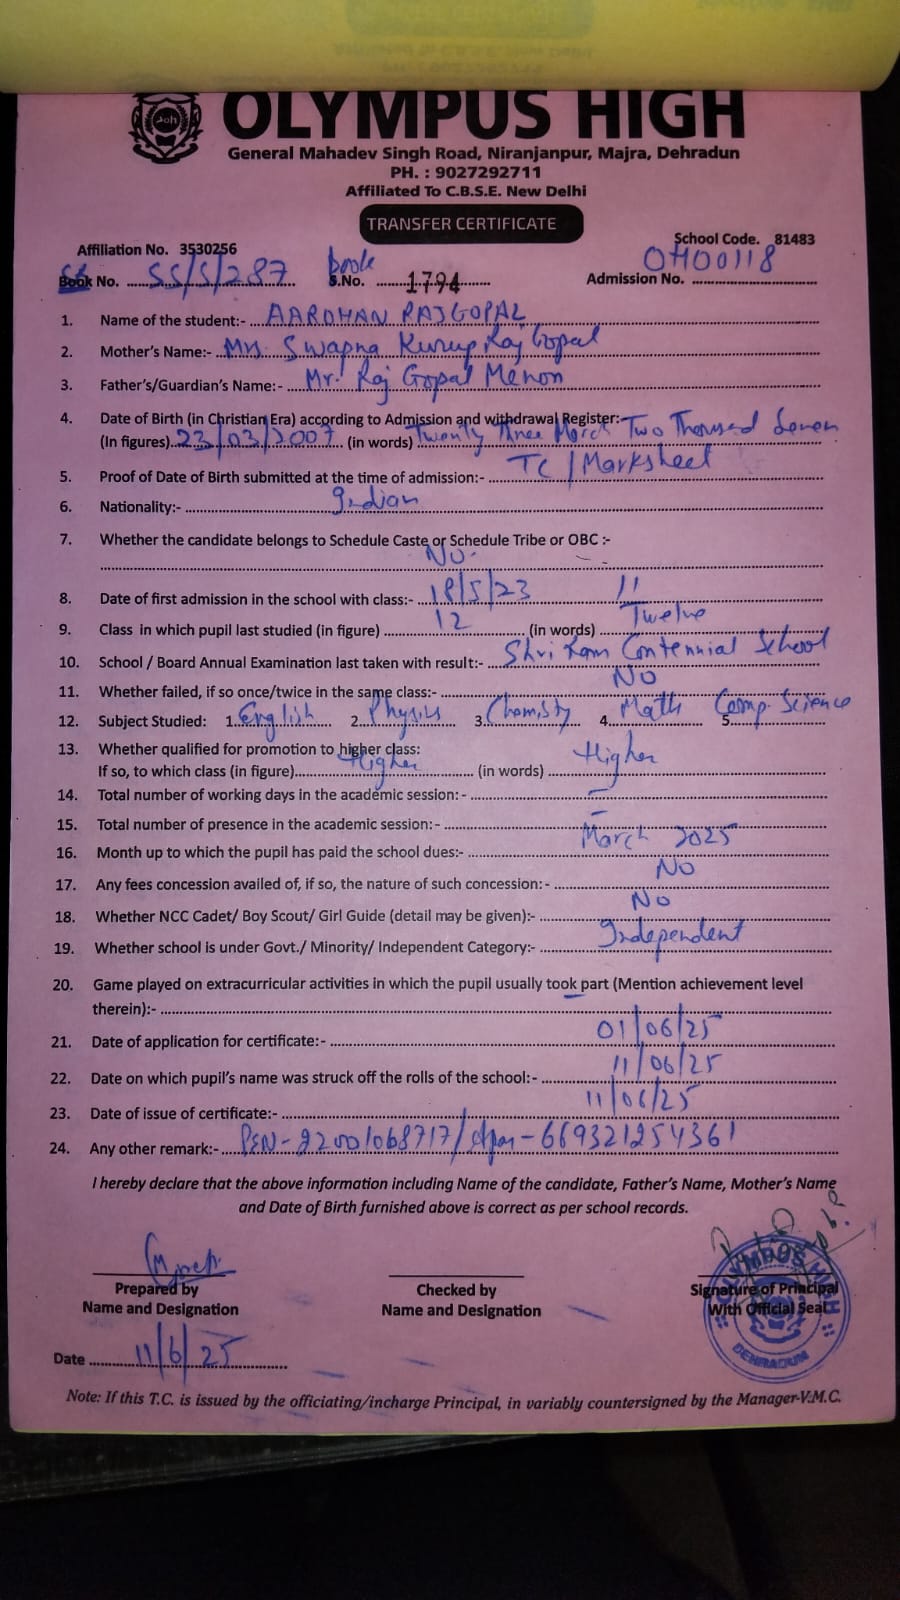 OLYMPUS HIGH
General Mahadev Singh Road, Niranjanpur, Majra, Dehradun
PH. : 9027292711
Affiliated To C.B.S.E. New Delhi
TRANSFER CERTIFICATE
Affiliation No. 3530256
School Code. 81483
Book No. SS/S/287 book S.No. 1794 Admission No. OH00118
1. Name of the student:- AARDHAN RAJGOPAL
2. Mother's Name:- Mrs. Swapna Kurup Raj Gopal
3. Father's/Guardian's Name:- Mr. Raj Gopal Menon
4. Date of Birth (in Christian Era) according to Admission and withdrawal Register:-
(In figures) 23/03/2007 (in words) Twenty Three March Two Thousand Seven
5. Proof of Date of Birth submitted at the time of admission:- TC / Marksheet
6. Nationality:- Indian
7. Whether the candidate belongs to Schedule Caste or Schedule Tribe or OBC :-
No.
8. Date of first admission in the school with class:- 18/5/23 11
9. Class in which pupil last studied (in figure) 12 (in words) Twelve
10. School / Board Annual Examination last taken with result:- Shri Ram Centennial School
11. Whether failed, if so once/twice in the same class:- NO
12. Subject Studied: 1. English 2. Physics 3. Chemisty 4. Math 5. Comp. Science
13. Whether qualified for promotion to higher class:
If so, to which class (in figure) Higher (in words) Higher
14. Total number of working days in the academic session: - –
15. Total number of presence in the academic session:- –
16. Month up to which the pupil has paid the school dues:- March 2025
17. Any fees concession availed of, if so, the nature of such concession: - No
18. Whether NCC Cadet/ Boy Scout/ Girl Guide (detail may be given):- No
19. Whether school is under Govt./ Minority/ Independent Category:- Independent
20. Game played on extracurricular activities in which the pupil usually took part (Mention achievement level
therein):-
21. Date of application for certificate:- 01/06/25
22. Date on which pupil's name was struck off the rolls of the school:- 11/06/25
23. Date of issue of certificate:- 11/06/25
24. Any other remark:- PEN-22001068717/Apar-669321254361
I hereby declare that the above information including Name of the candidate, Father's Name, Mother's Name
and Date of Birth furnished above is correct as per school records.
Prepared by Checked by Signature of Principal
Name and Designation Name and Designation With Official Seal
OLYMPUS HIGH
DEHRADUN
Date 11/6/25
Note: If this T.C. is issued by the officiating/incharge Principal, in variably countersigned by the Manager-V.M.C.